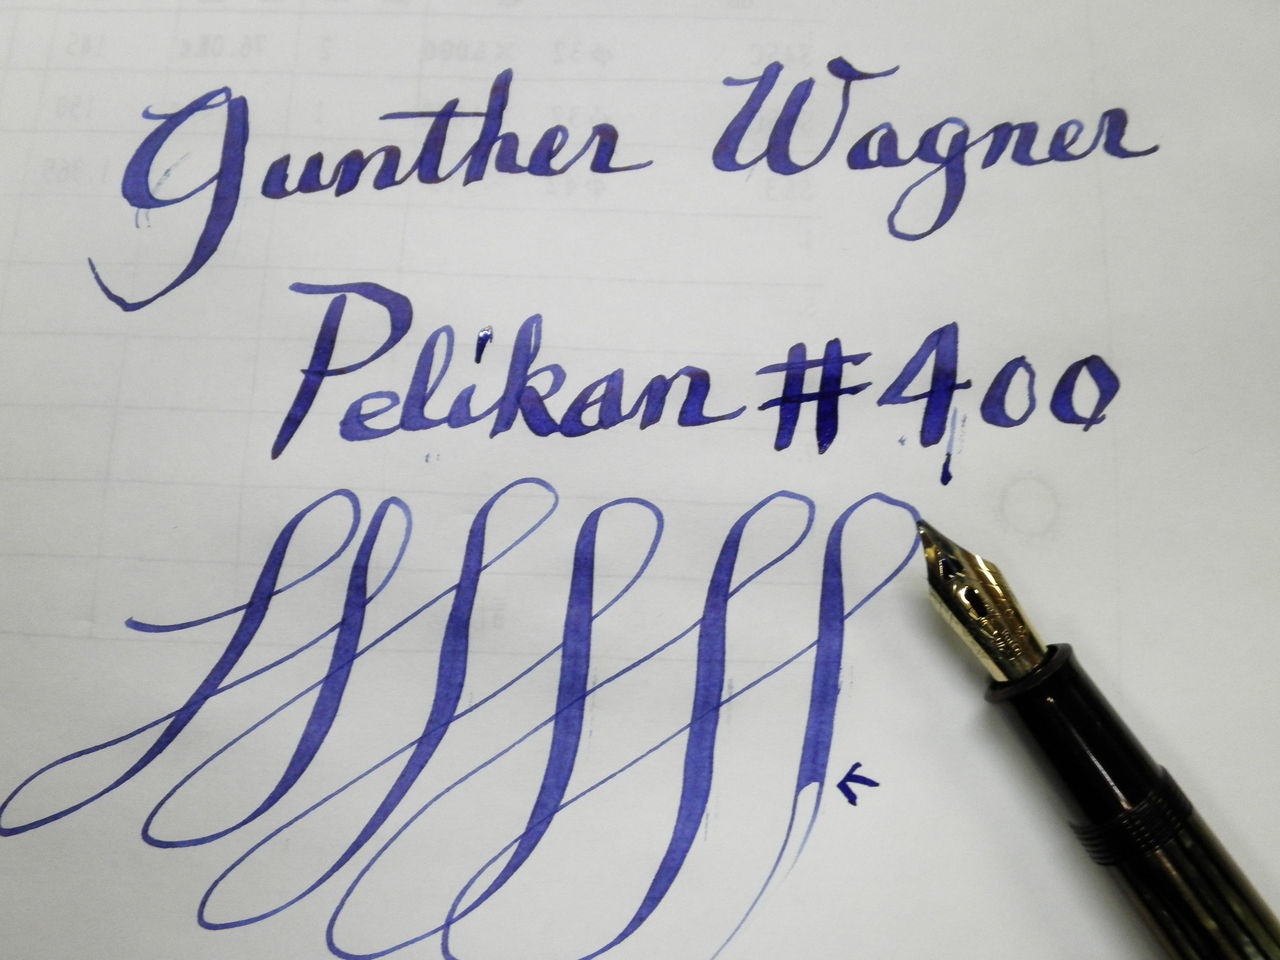 Gunther Wagner
Pelikan #400